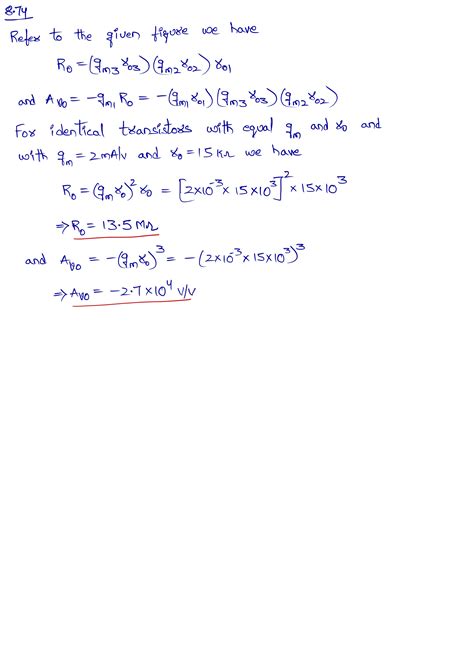 8.74
Refer to the given figure we have
R₀ = (gm3 r03)(gm2 r02) r01
and Av0 = -gm1 R0 = -(gm1 r01)(gm3 r03)(gm2 r02)
For identical transistors with equal gm and r0 and
with gm = 2mA/v and r0 = 15KΩ we have
R0 = (gm r0)² r0 = [2×10⁻³ × 15×10³]² × 15×10³
⇒ R0 = 13.5 MΩ
and Av0 = -(gm r0)³ = -(2×10⁻³ × 15×10³)³
⇒ Av0 = -2.7×10⁴ v/v